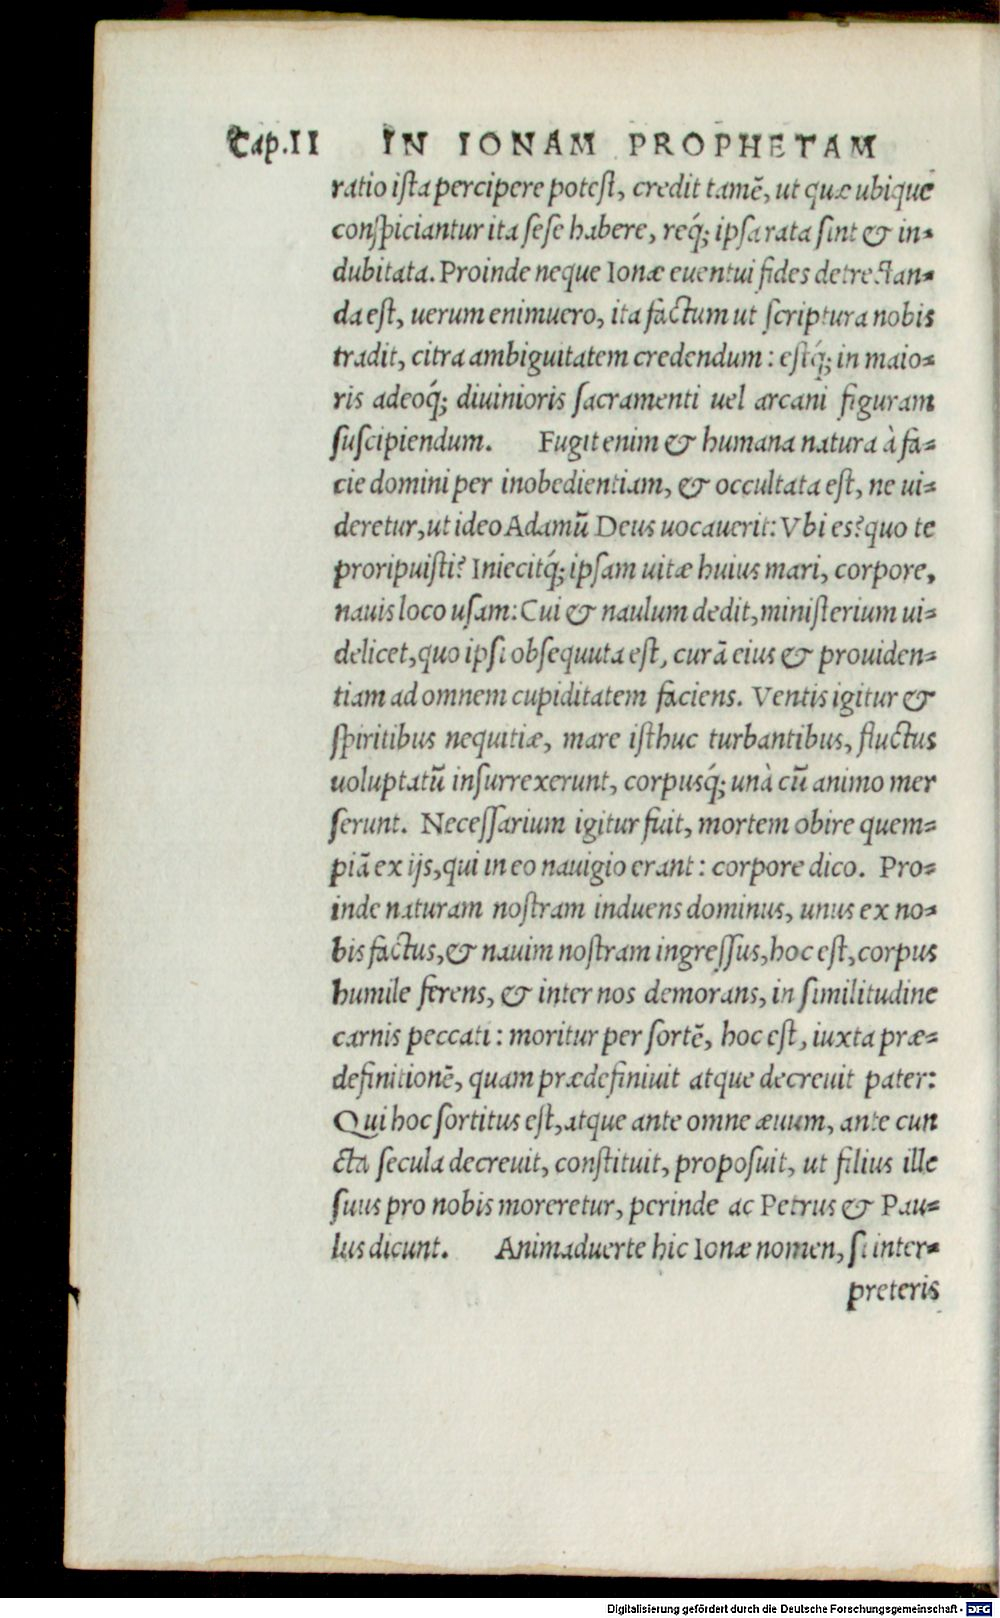 Cap.II IN IONAM PROPHETAM
ratio ista percipere potest, credit tamē, ut quæ ubique
conspiciantur ita sese habere, req́; ipsa rata sint & in-
dubitata. Proinde neque Ionæ euentui fides detrectan-
da est, uerum enimuero, ita factum ut scriptura nobis
tradit, citra ambiguitatem credendum: estq́; in maio-
ris adeoq́; diuinioris sacramenti uel arcani figuram
suscipiendum. Fugit enim & humana natura à fa-
cie domini per inobedientiam, & occultata est, ne ui-
deretur, ut ideo Adamū Deus uocauerit: Vbi es? quo te
proripuisti? Iniecitq́; ipsam uitæ huius mari, corpore,
nauis loco usam: Cui & naulum dedit, ministerium ui-
delicet, quo ipsi obsequuta est, curā eius & prouiden-
tiam ad omnem cupiditatem faciens. Ventis igitur &
spiritibus nequitiæ, mare isthuc turbantibus, fluctus
uoluptatū insurrexerunt, corpusq́; unà cū animo mer
serunt. Necessarium igitur fuit, mortem obire quem-
piā ex ijs, qui in eo nauigio erant: corpore dico. Pro-
inde naturam nostram induens dominus, unus ex no-
bis factus, & nauim nostram ingressus, hoc est, corpus
humile ferens, & inter nos demorans, in similitudine
carnis peccati: moritur per sortē, hoc est, iuxta præ-
definitionē, quam prædefiniuit atque decreuit pater:
Qui hoc sortitus est, atque ante omne æuum, ante cun
cta secula decreuit, constituit, proposuit, ut filius ille
suus pro nobis moreretur, perinde ac Petrus & Pau-
lus dicunt. Animaduerte hic Ionæ nomen, si inter-
preteris
Digitalisierung gefördert durch die Deutsche Forschungsgemeinschaft - DFG